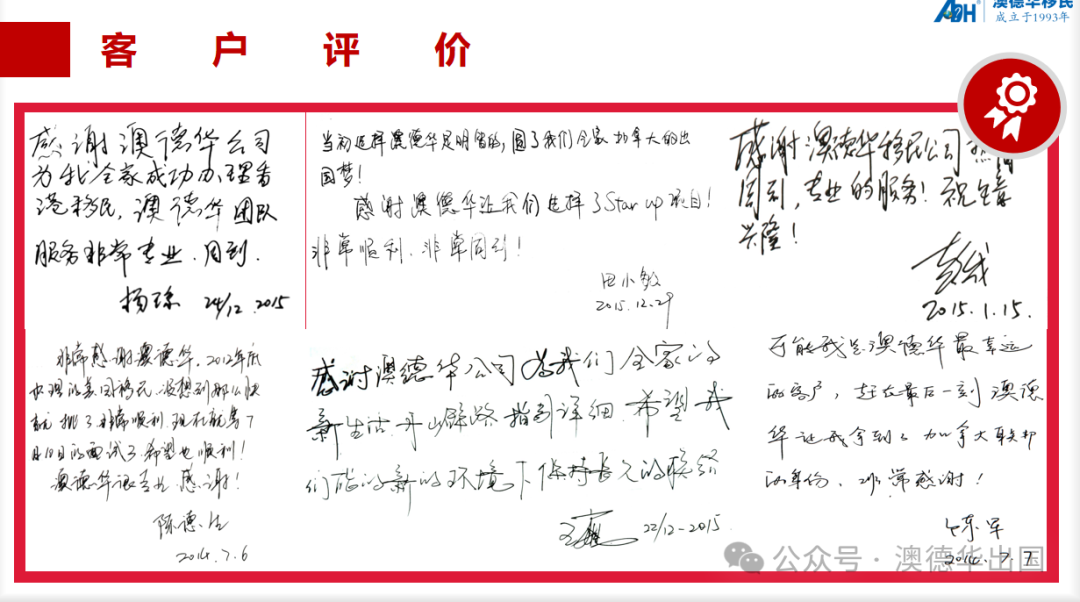 ADH 澳德华移民
成立于1993年
客户评价
感谢澳德华公司
为我全家成功办理香
港移民,澳德华团队
服务非常专业、周到.
杨琼 24/12.2015
当初选择澳德华是明智的,圆了我们全家加拿大的出
国梦!
感谢澳德华让我们选择了Star up项目!
非常顺利、非常周到!
田小敏
2015.12.29
感谢澳德华移民公司热情
周到,专业的服务!祝生意
兴隆!
2015.1.15.
非常感谢澳德华,2012年底
办理的美国移民,没想到那么快
就批了非常顺利.现在就等7
月10日的面试了.希望也顺利!
澳德华很专业 感谢!
陈德生
2014.7.6
感谢澳德华公司为我们全家的
新生活 指引详细.希望我
们 新的环境下保持长久的联络
22/12-2015
可能我是澳德华最幸运
的客户,赶在最后一刻澳德
华让我拿到了加拿大联邦
的年份,非常感谢!
东军
2014.7.7
公众号·澳德华出国